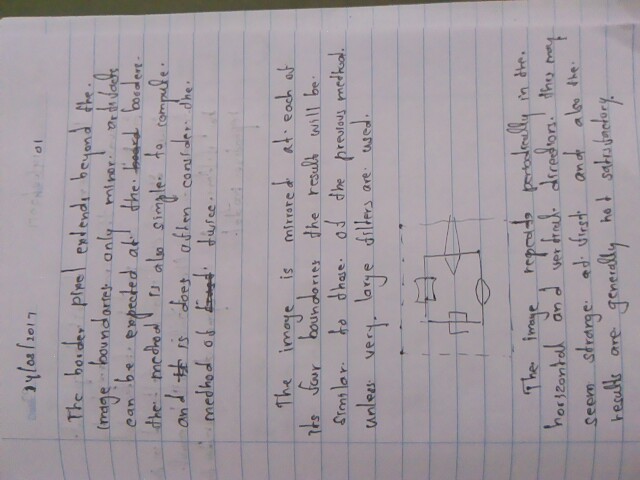 24/08/2017
01
The border pixel extends beyond the.
image boundaries only minor artifacts
can be expected at the borders.
the method is also simple to compute.
and is does often consider the.
method of twice.
The image is mirrored at each of
its four boundaries the result will be.
similar to those of the previous method.
unless very large filters are used.
The image repeats periodically in the.
horizontal and vertical directions. this may
seem strange at first and also the.
results are generally not satisfactory.